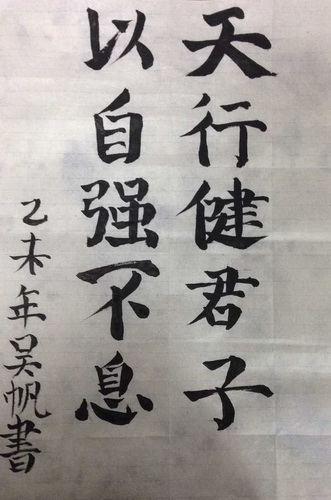 天行健君子
以自强不息
乙未年吴帆書